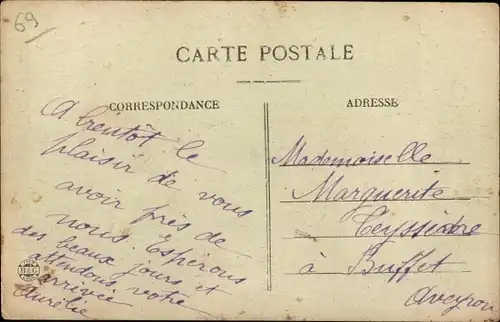 69
CARTE POSTALE
CORRESPONDANCE
ADRESSE
A bientôt le
plaisir de vous
avoir près de
nous. Espérons
des beaux jours et
attendons votre
arrivée
Aurélie
Mademoiselle
Marguerite
Teyssèdre
à Buffet
Aveyron